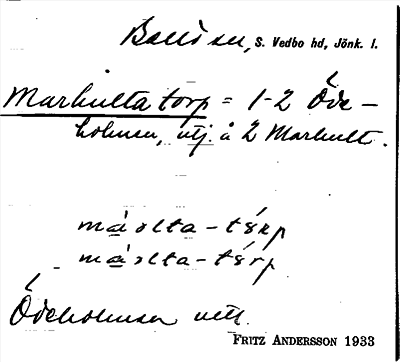 Bellö sn, S. Vedbo hd, Jönk. l.
Markulta torp = 1-2 Öde-
holmen, utj. å 2 Markult.
má̲ɔlta-tórp
má̲ɔlta-tórp
Ödeholmen utt.
FRITZ ANDERSSON 1933